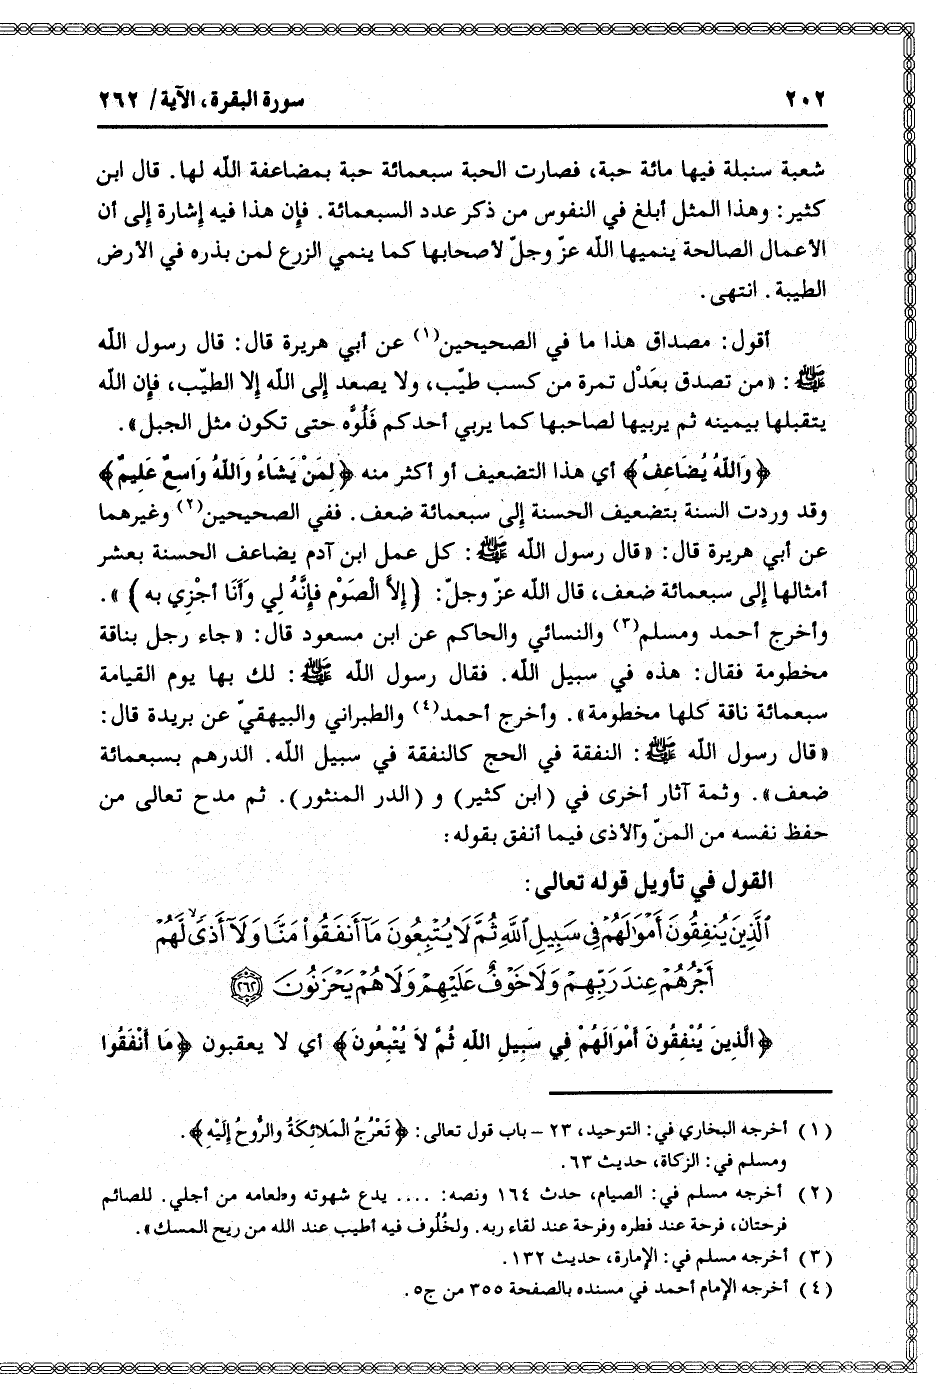 ٢٠٢
سورة البقرة، الآية / ٢٦٢
شعبة سنبلة فيها مائة حبة، فصارت الحبة سبعمائة حبة بمضاعفة الله لها. قال ابن
كثير: وهذا المثل أبلغ في النفوس من ذكر عدد السبعمائة. فإن هذا فيه إشارة إلى أن
الأعمال الصالحة ينميها الله عزّ وجلّ لأصحابها كما ينمي الزرع لمن بذره في الأرض
الطيبة. انتهى.
أقول: مصداق هذا ما في الصحيحين(١) عن أبي هريرة قال: قال رسول الله
ﷺ: «من تصدق بعَدْل تمرة من كسب طيّب، ولا يصعد إلى الله إلا الطيّب، فإن الله
يتقبلها بيمينه ثم يربيها لصاحبها كما يربي أحدكم فَلُوَّه حتى تكون مثل الجبل».
﴿وَاللهُ يُضَاعِفُ﴾ أي هذا التضعيف أو أكثر منه ﴿لِمَنْ يَشَاءُ وَاللهُ وَاسِعٌ عَلِيمٌ﴾
وقد وردت السنة بتضعيف الحسنة إلى سبعمائة ضعف. ففي الصحيحين(٢) وغيرهما
عن أبي هريرة قال: «قال رسول الله ﷺ: كل عمل ابن آدم يضاعف الحسنة بعشر
أمثالها إلى سبعمائة ضعف، قال الله عزّ وجلّ: (إلاَّ الْصَوْم فإنَّهُ لِي وَأَنَا أجْزِي به)».
وأخرج أحمد ومسلم(٣) والنسائي والحاكم عن ابن مسعود قال: «جاء رجل بناقة
مخطومة فقال: هذه في سبيل الله. فقال رسول الله ﷺ: لك بها يوم القيامة
سبعمائة ناقة كلها مخطومة». وأخرج أحمد(٤) والطبراني والبيهقيّ عن بريدة قال:
«قال رسول الله ﷺ: النفقة في الحج كالنفقة في سبيل الله. الدرهم بسبعمائة
ضعف». وثمة آثار أخرى في (ابن كثير) و (الدر المنثور). ثم مدح تعالى من
حفظ نفسه من المنّ والأذى فيما أنفق بقوله:
القول في تأويل قوله تعالى:
ٱلَّذِينَ يُنفِقُونَ أَمْوَٰلَهُمْ فِى سَبِيلِ ٱللَّهِ ثُمَّ لَا يُتْبِعُونَ مَآ أَنفَقُوا۟ مَنًّا وَلَآ أَذًى ۙ لَّهُمْ
أَجْرُهُمْ عِندَ رَبِّهِمْ وَلَا خَوْفٌ عَلَيْهِمْ وَلَا هُمْ يَحْزَنُونَ ﴿٢٦٢﴾
﴿الَّذِينَ يُنْفِقُونَ أَمْوَالَهُمْ فِي سَبِيلِ اللهِ ثُمَّ لاَ يُتْبِعُونَ﴾ أي لا يعقبون ﴿مَا أَنْفَقُوا
(١) أخرجه البخاري في: التوحيد، ٢٣ – باب قول تعالى: ﴿تَعْرُجُ الْمَلاَئِكَةُ والرُّوحُ إِلَيْهِ﴾.
ومسلم في: الزكاة، حديث ٦٣.
(٢) أخرجه مسلم في: الصيام، حدث ١٦٤ ونصه: .... يدع شهوته وطعامه من أجلي. للصائم
فرحتان، فرحة عند فطره وفرحة عند لقاء ربه. ولخُلُوف فيه أطيب عند الله من ريح المسك».
(٣) أخرجه مسلم في: الإمارة، حديث ١٣٢.
(٤) أخرجه الإمام أحمد في مسنده بالصفحة ٣٥٥ من ج٥.